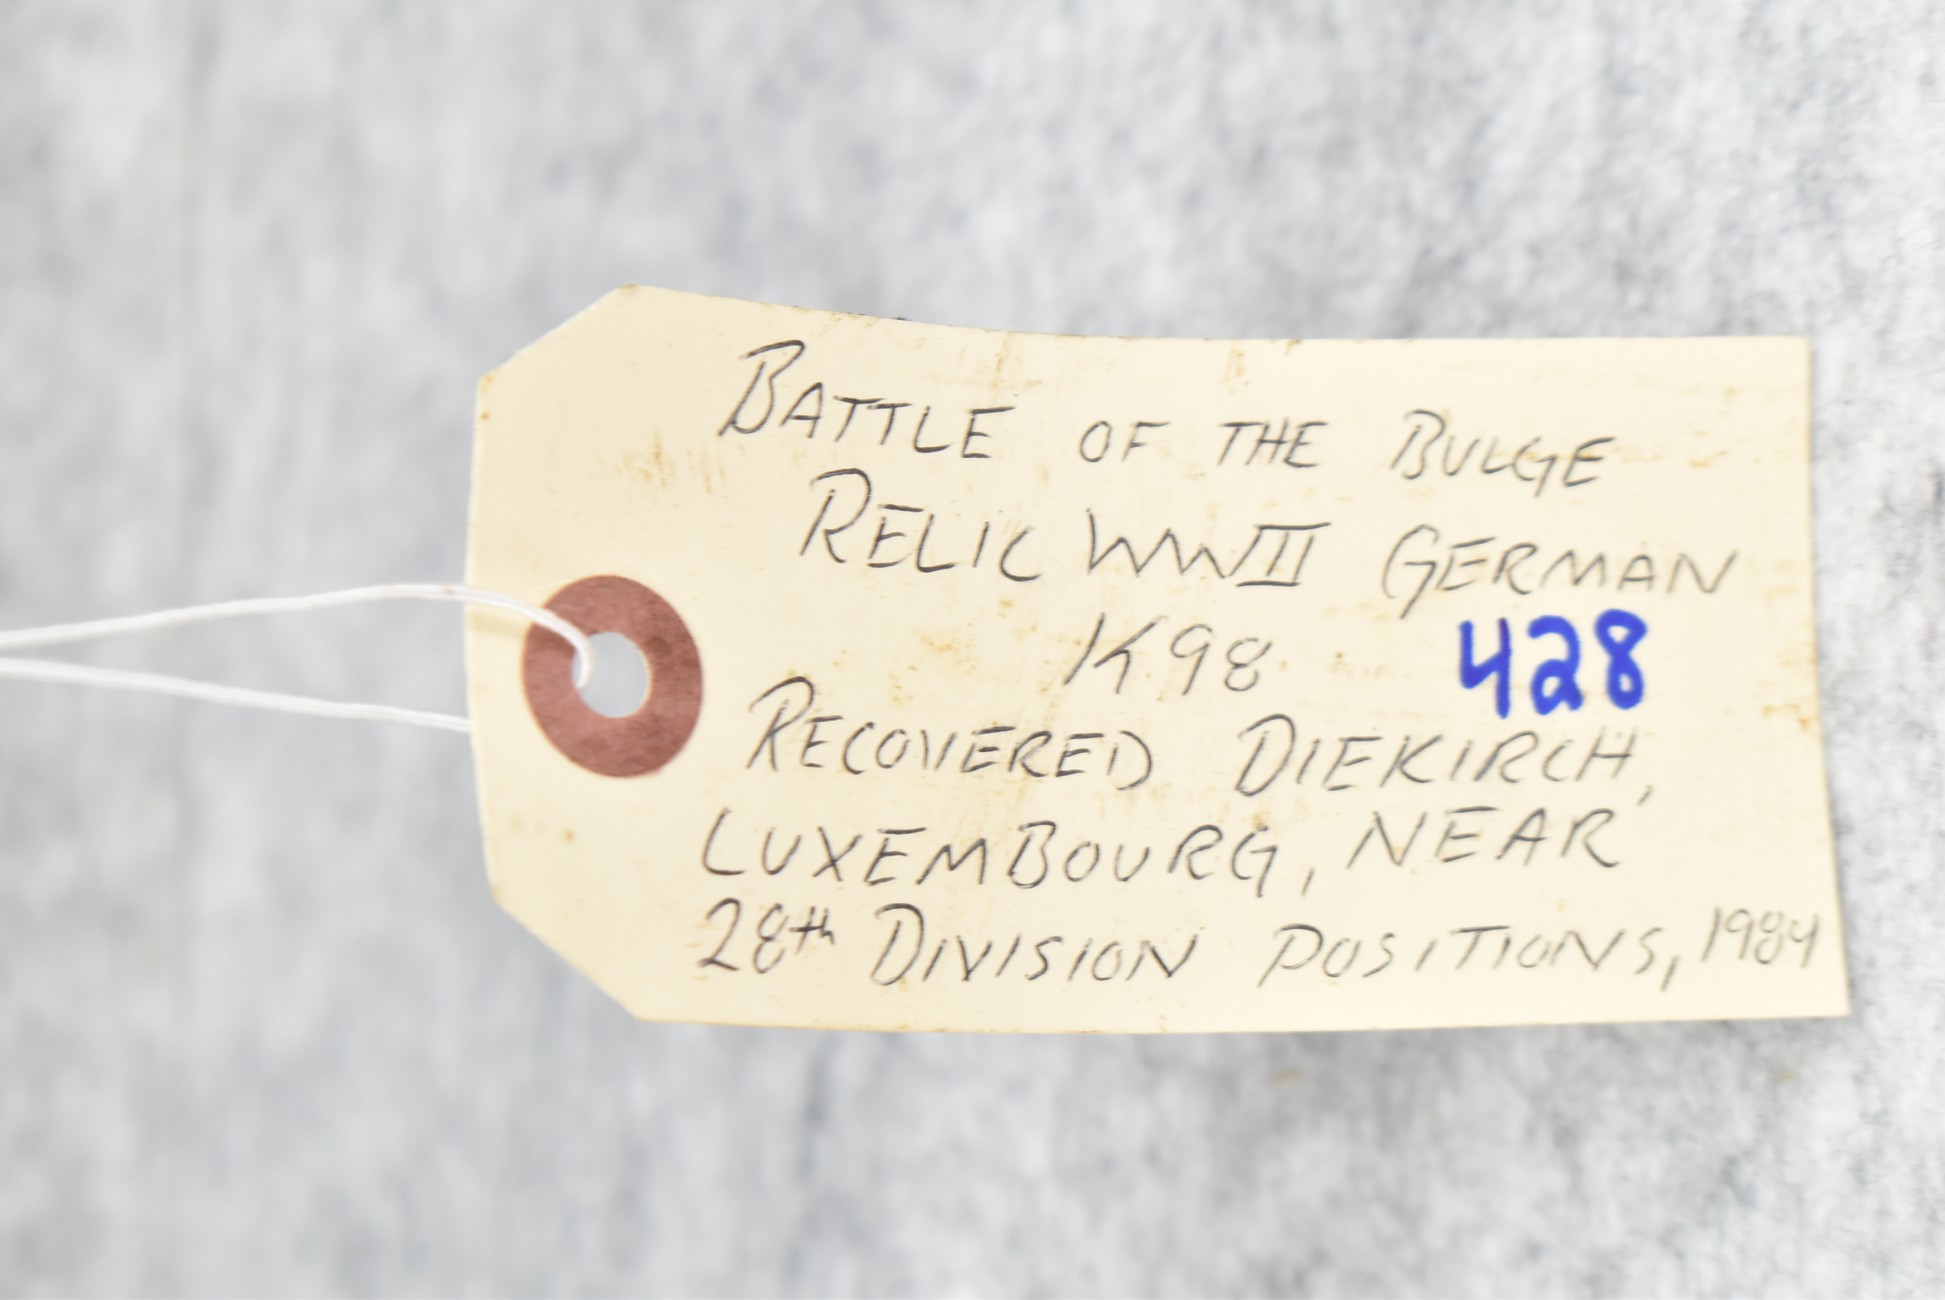 BATTLE OF THE BULGE
RELIC WWII GERMAN
K98 428
RECOVERED DIEKIRCH,
LUXEMBOURG, NEAR
28th DIVISION POSITIONS, 1984